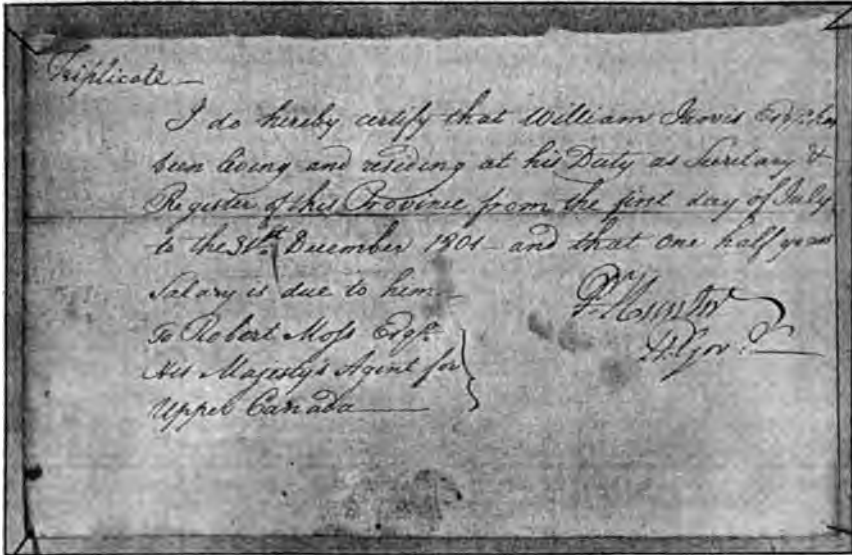 Triplicate —
I do hereby certify that William Jarvis Esqr. has
been living and residing at his Duty as Secretary &
Register of this Province from the first day of July
to the 31st. December 1801 – and that one half years
Salary is due to him —
Pr. Hunter
Lt. Gov.r
To Robert Moss Esqr.
His Majesty's Agent for
Upper Canada —